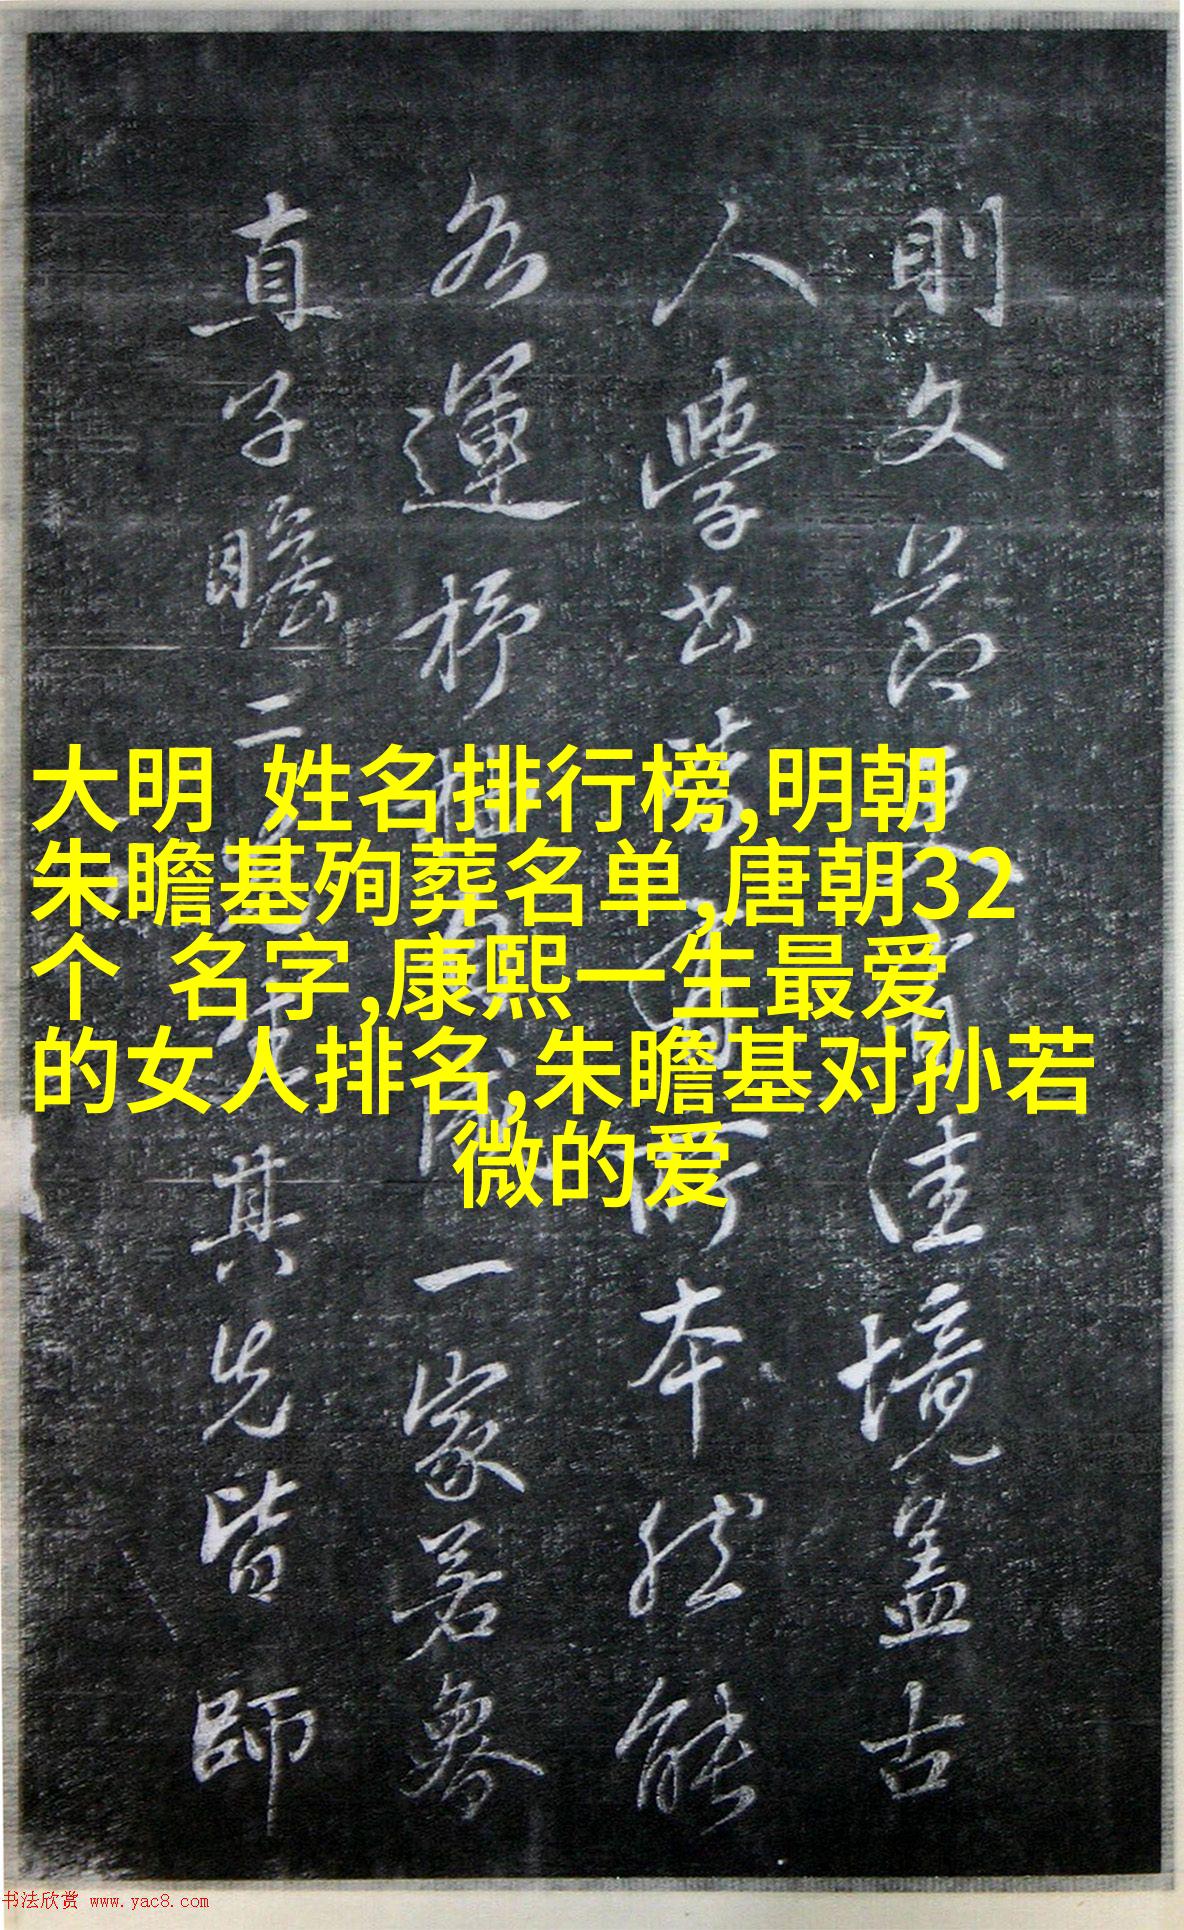 大明 姓名排行榜,明朝
朱瞻基殉葬名单,唐朝32
个 名字,康熙一生最爱
的女人排名,朱瞻基对孙若
微的爱
則文節佳境蓋古
人學書有所本然能
各運杼成一家若魯
直子瞻二其先皆師
书法欣赏 www.yac8.com